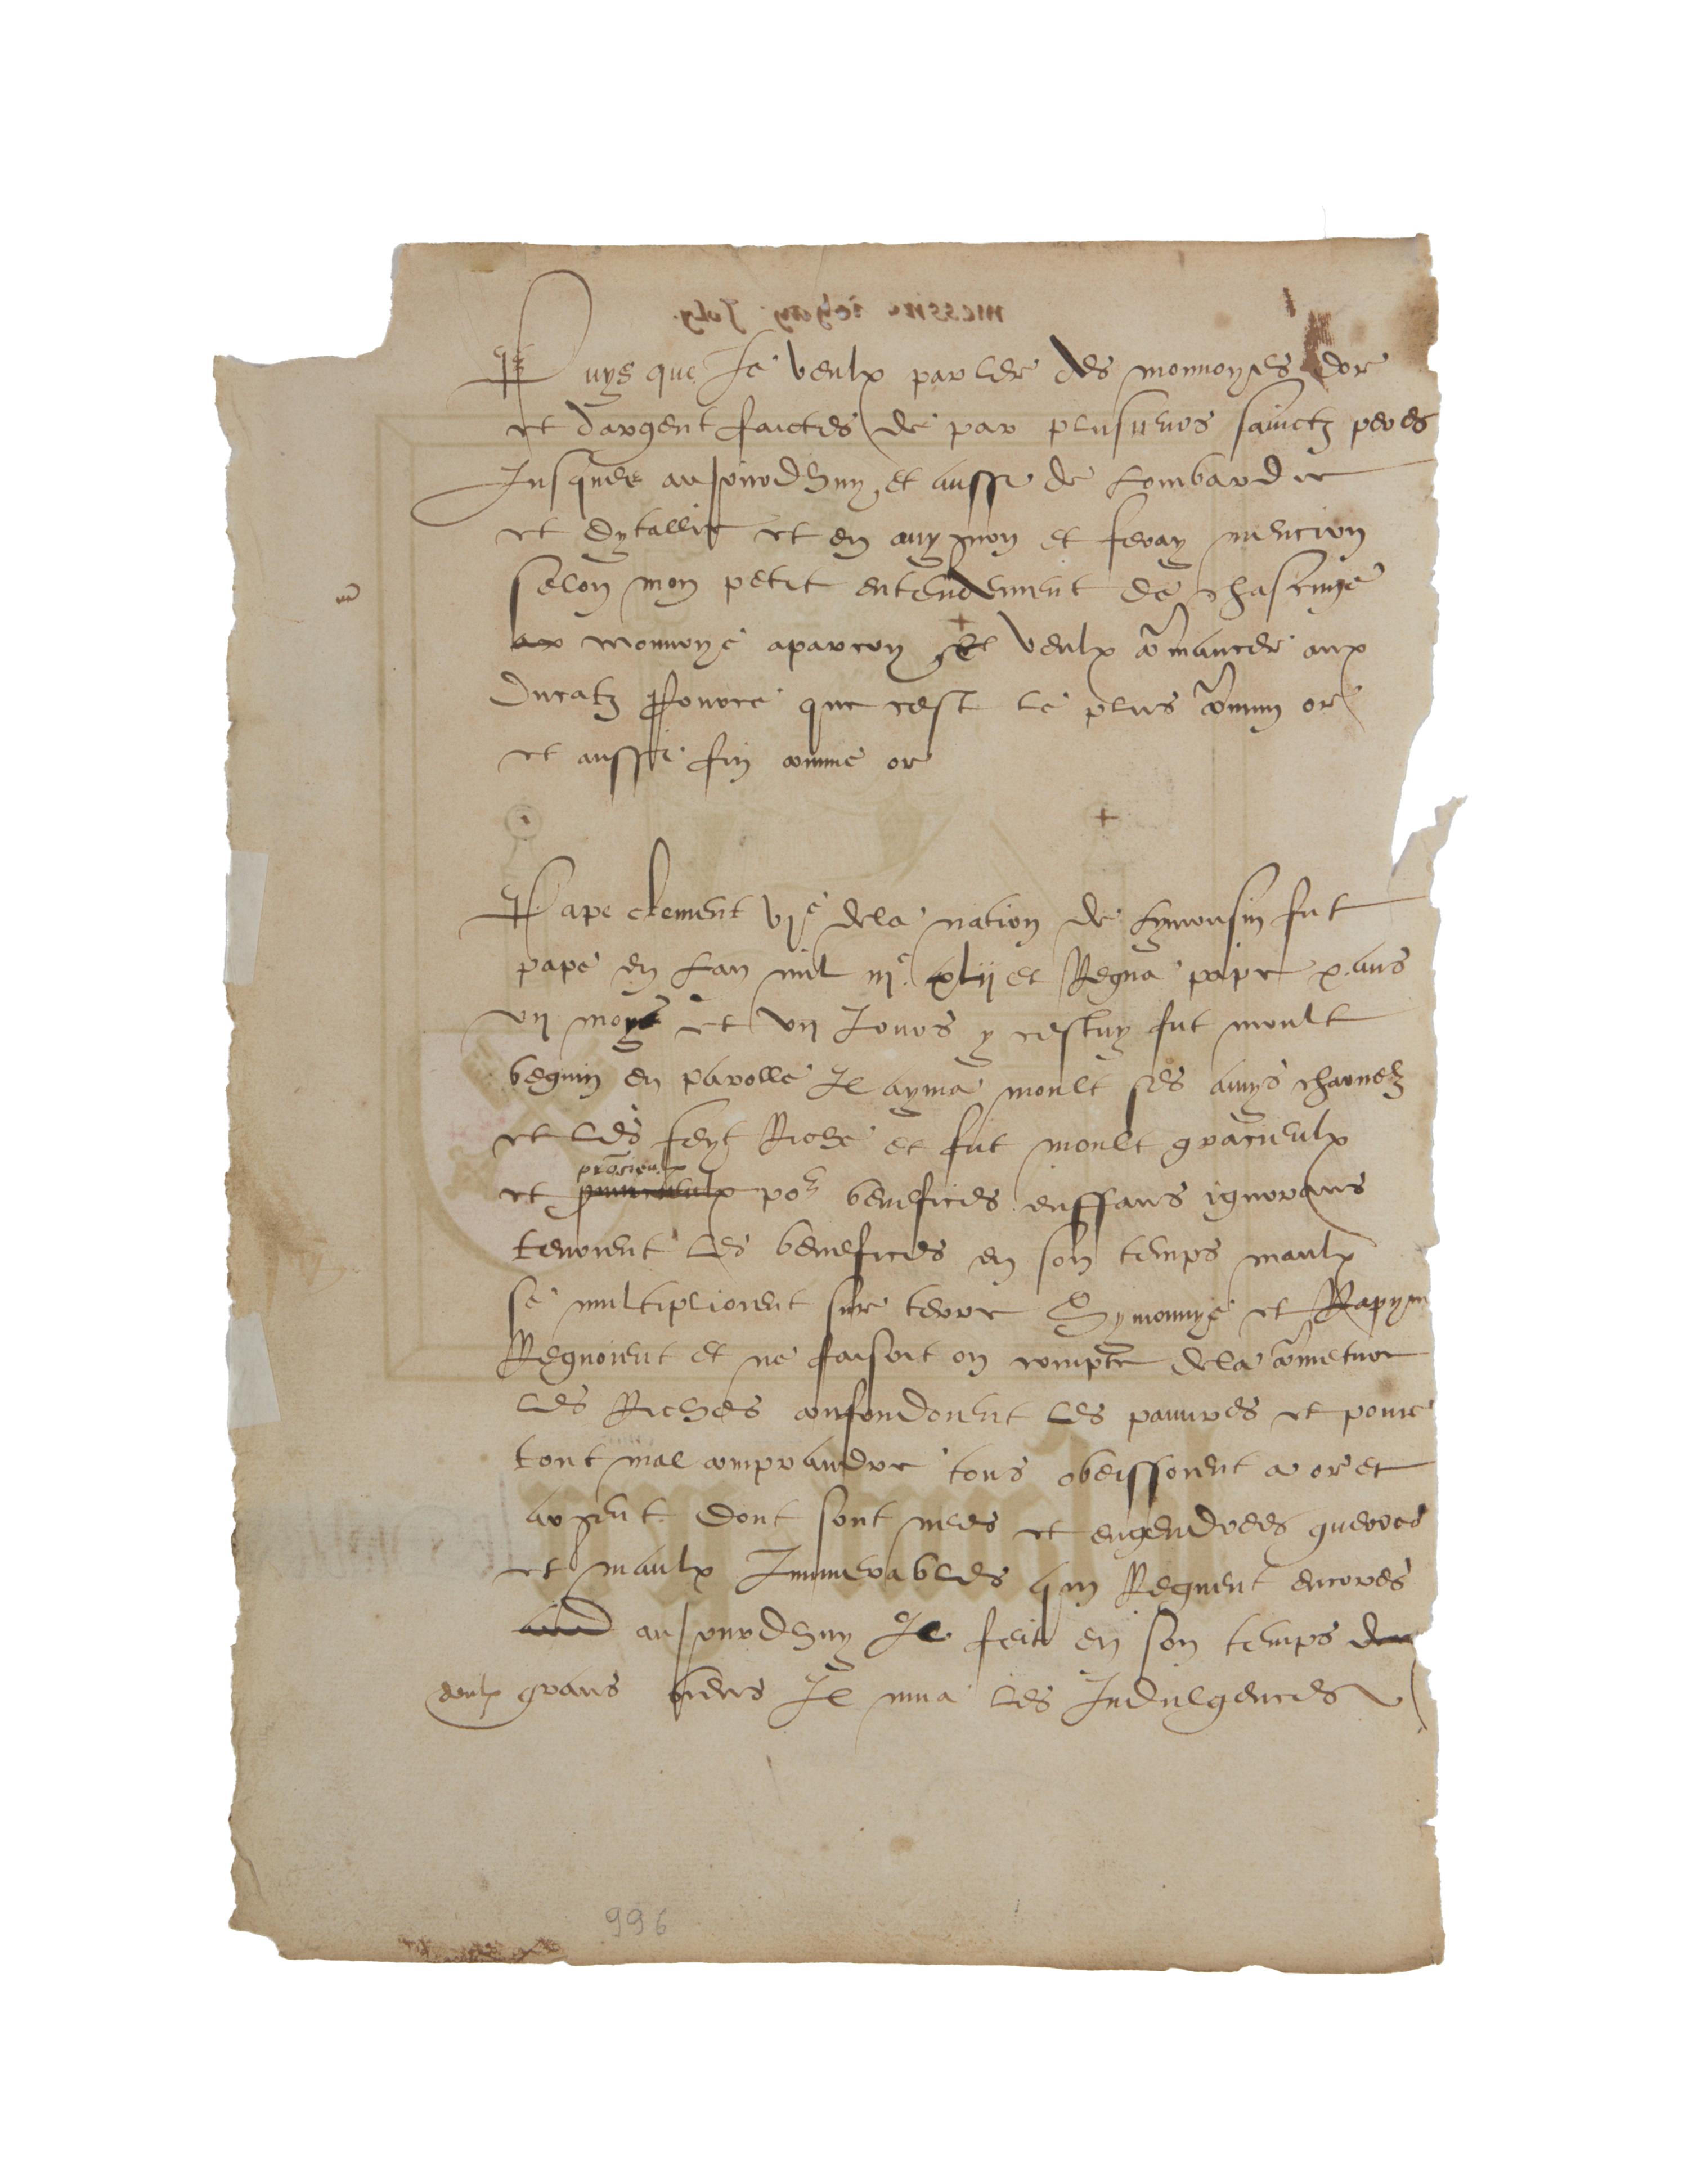 Puys que Je veulx parler des monnoyes dor
et dargent faictes de par plusieurs sainctz peres
Jusques aujourdhuy et aussi de Lombardie
et dytallie et en avignon et feray mencion
selon mon petit entendement de chascune
monnoye aparcoy Je veulx commancer aux
Ducatz pource que cest le plus commun or
et aussi fin comme or
Pape clement vje dela nation de Lymousin fut
pape en Lan mil iije xlij et Regna pape x ans
vij moys et vij Jours cestuy fut moult
begnin en parolle Il ayma moult ses amys charnelz
et les feyt Riche et fut moult gracieulx
et precieulx por benefices enffans ignorans
tenoient les benefices en son temps maulx
se multiplioient sur terre Symonnye et Rapyn
Regnoient et ne faisoit on compte dela
les Riches confondoient les pauvres et pour
tout mal comprandre tous obeissoient a or et
argent dont sont nees et engendrees guerres
et maulx Innumerables qui Regnent encores
aujourdhuy Il feit en son temps
deulx grans biens Il mua les Indulgences
996